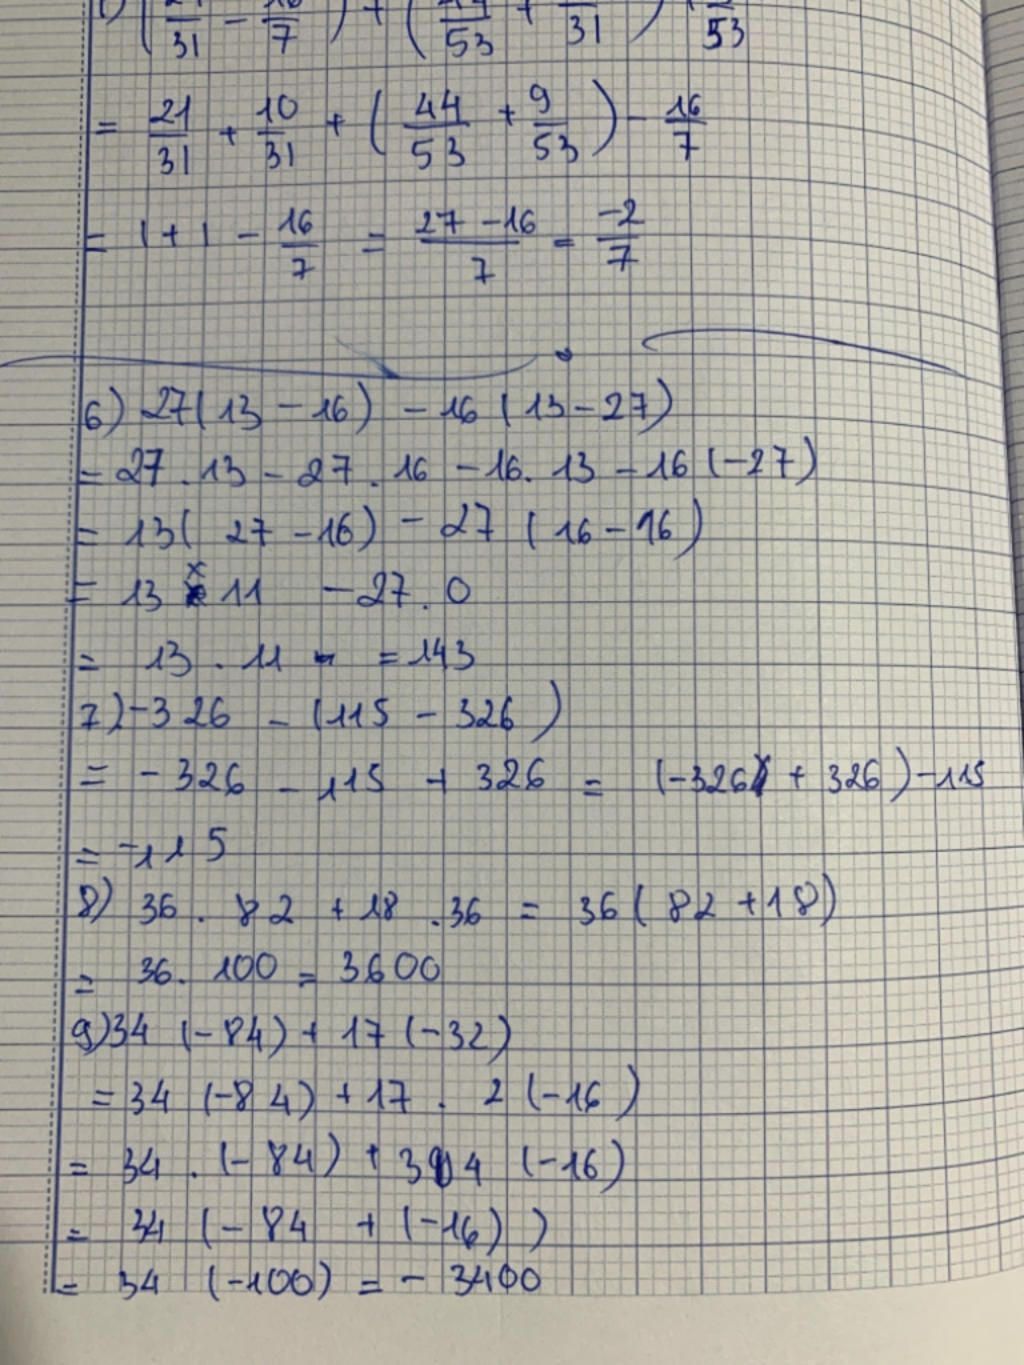 (21/31 - 16/7) + (44/53 + /31) 53
= 21/31 + 10/31 + (44/53 + 9/53) - 16/7
= 1 + 1 - 16/7 = 27 - 16/7 = -2/7
6) 27(13 - 16) - 16(13 - 27)
= 27 . 13 - 27 . 16 - 16 . 13 - 16(-27)
= 13( 27 - 16) - 27 (16 - 16)
= 13 x 11 - 27 . 0
= 13 . 11 - = 143
7) -326 - (115 - 326)
= - 326 - 115 + 326 = (-326 + 326) - 115
= -115
8) 36 . 82 + 18 . 36 = 36( 82 + 18)
= 36 . 100 = 3600
9) 34 (-84) + 17 (-32)
= 34 (-84) + 17 . 2 (-16)
= 34 . (-84) + 34 (-16)
= 34 (- 84 + (-16) )
= 34 (-100) = - 3400